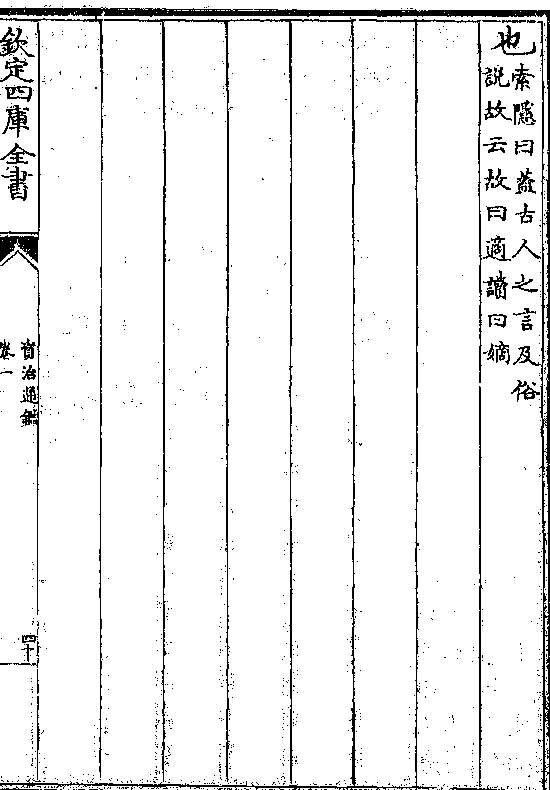 也索隱曰蓋古人之言及俗
說故云故曰適讀曰嫡
欽定四庫全書
資治通鑑
卷一
四十